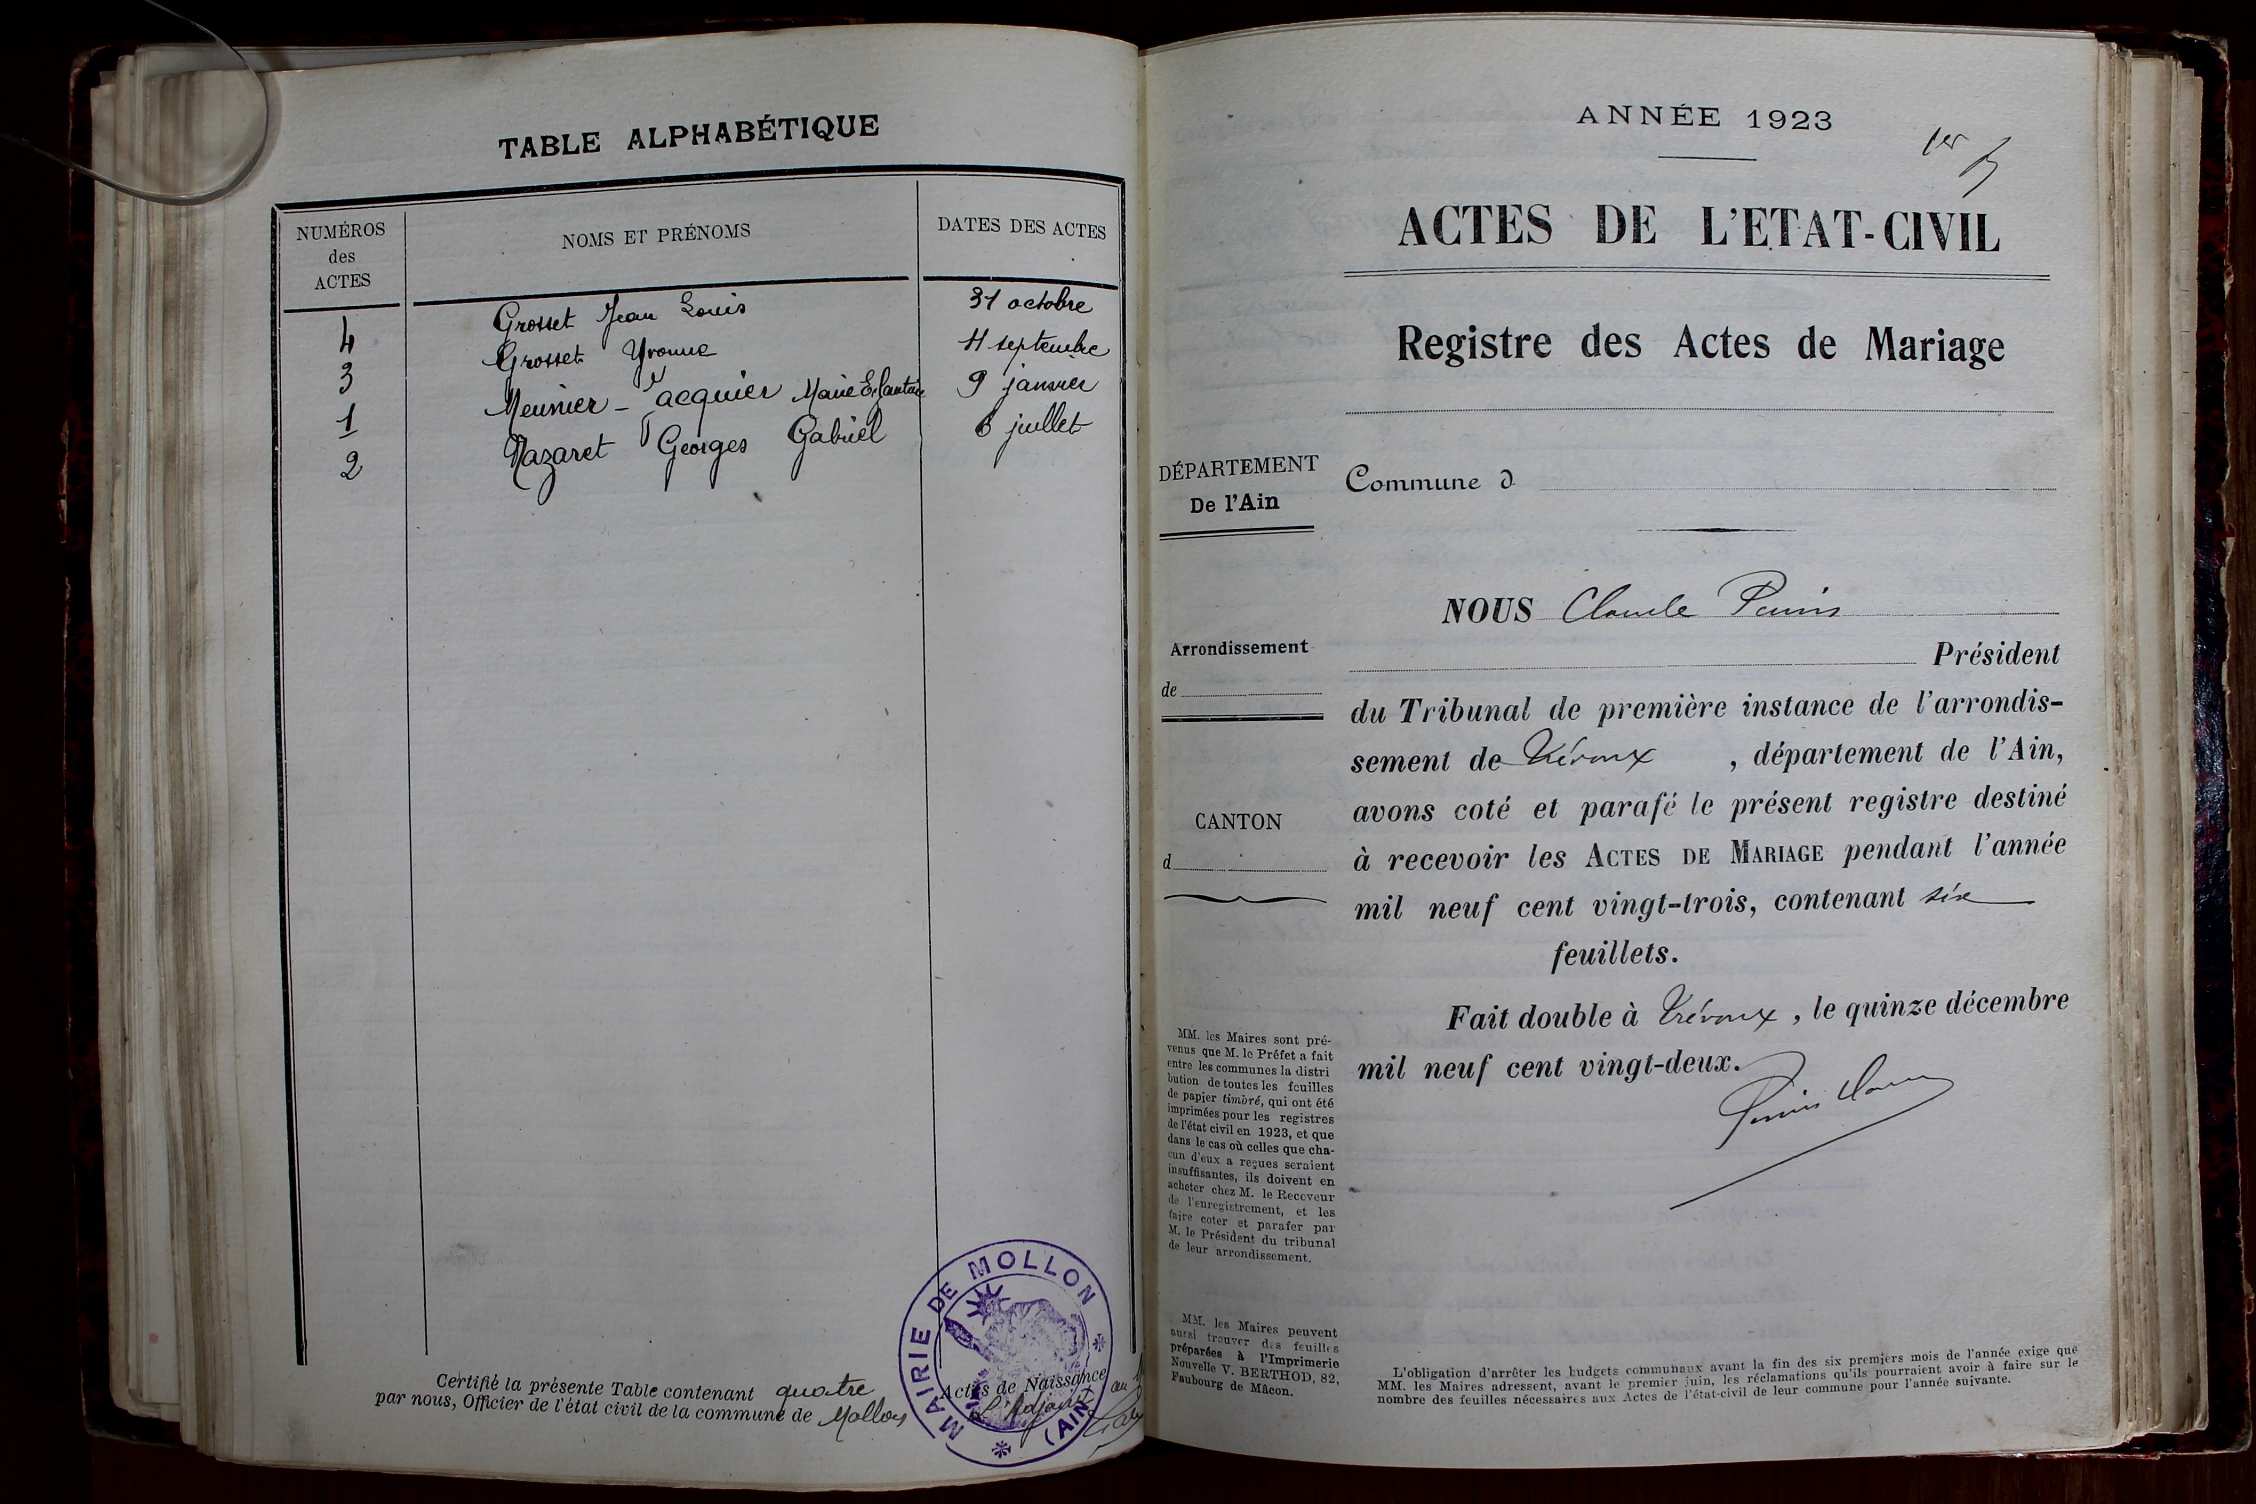 TABLE ALPHABÉTIQUE
NUMÉROS des ACTES
NOMS ET PRÉNOMS
DATES DES ACTES
4 Grosset Jean Louis 31 octobre
3 Grosset Yvonne 11 septembre
1 Meunier - Jacquier Marie 9 janvier
2 Nazaret Georges Gabriel 6 juillet
Certifié la présente Table contenant quatre Actes de Naissance
par nous, Officier de l'état civil de la commune de Mollon L'Adjoint
MAIRIE DE MOLLON
(AIN)
ANNÉE 1923
1er
ACTES DE L'ETAT-CIVIL
Registre des Actes de Mariage
DÉPARTEMENT
De l'Ain
Arrondissement
de
CANTON
d
MM. les Maires sont pré-
venus que M. le Préfet a fait
entre les communes la distri
bution de toutes les feuilles
de papier timbré, qui ont été
imprimées pour les registres
de l'état civil en 1923, et que
dans le cas où celles que cha-
cun d'eux a reçues seraient
insuffisantes, ils doivent en
acheter chez M. le Receveur
de l'enregistrement, et les
faire coter et parafer par
M. le Président du tribunal
de leur arrondissement.
MM. les Maires peuvent
aussi trouver des feuilles
préparées à l'Imprimerie
Nouvelle V. BERTHOD, 82,
Faubourg de Mâcon.
Commune d
NOUS Claude
Président
du Tribunal de première instance de l'arrondis-
sement de Trévoux, département de l'Ain,
avons coté et parafé le présent registre destiné
à recevoir les ACTES DE MARIAGE pendant l'année
mil neuf cent vingt-trois, contenant six
feuillets.
Fait double à Trévoux, le quinze décembre
mil neuf cent vingt-deux.
L'obligation d'arrêter les budgets communaux avant la fin des six premiers mois de l'année exige que
MM. les Maires adressent, avant le premier juin, les réclamations qu'ils pourraient avoir à faire sur le
nombre des feuilles nécessaires aux Actes de l'état-civil de leur commune pour l'année suivante.